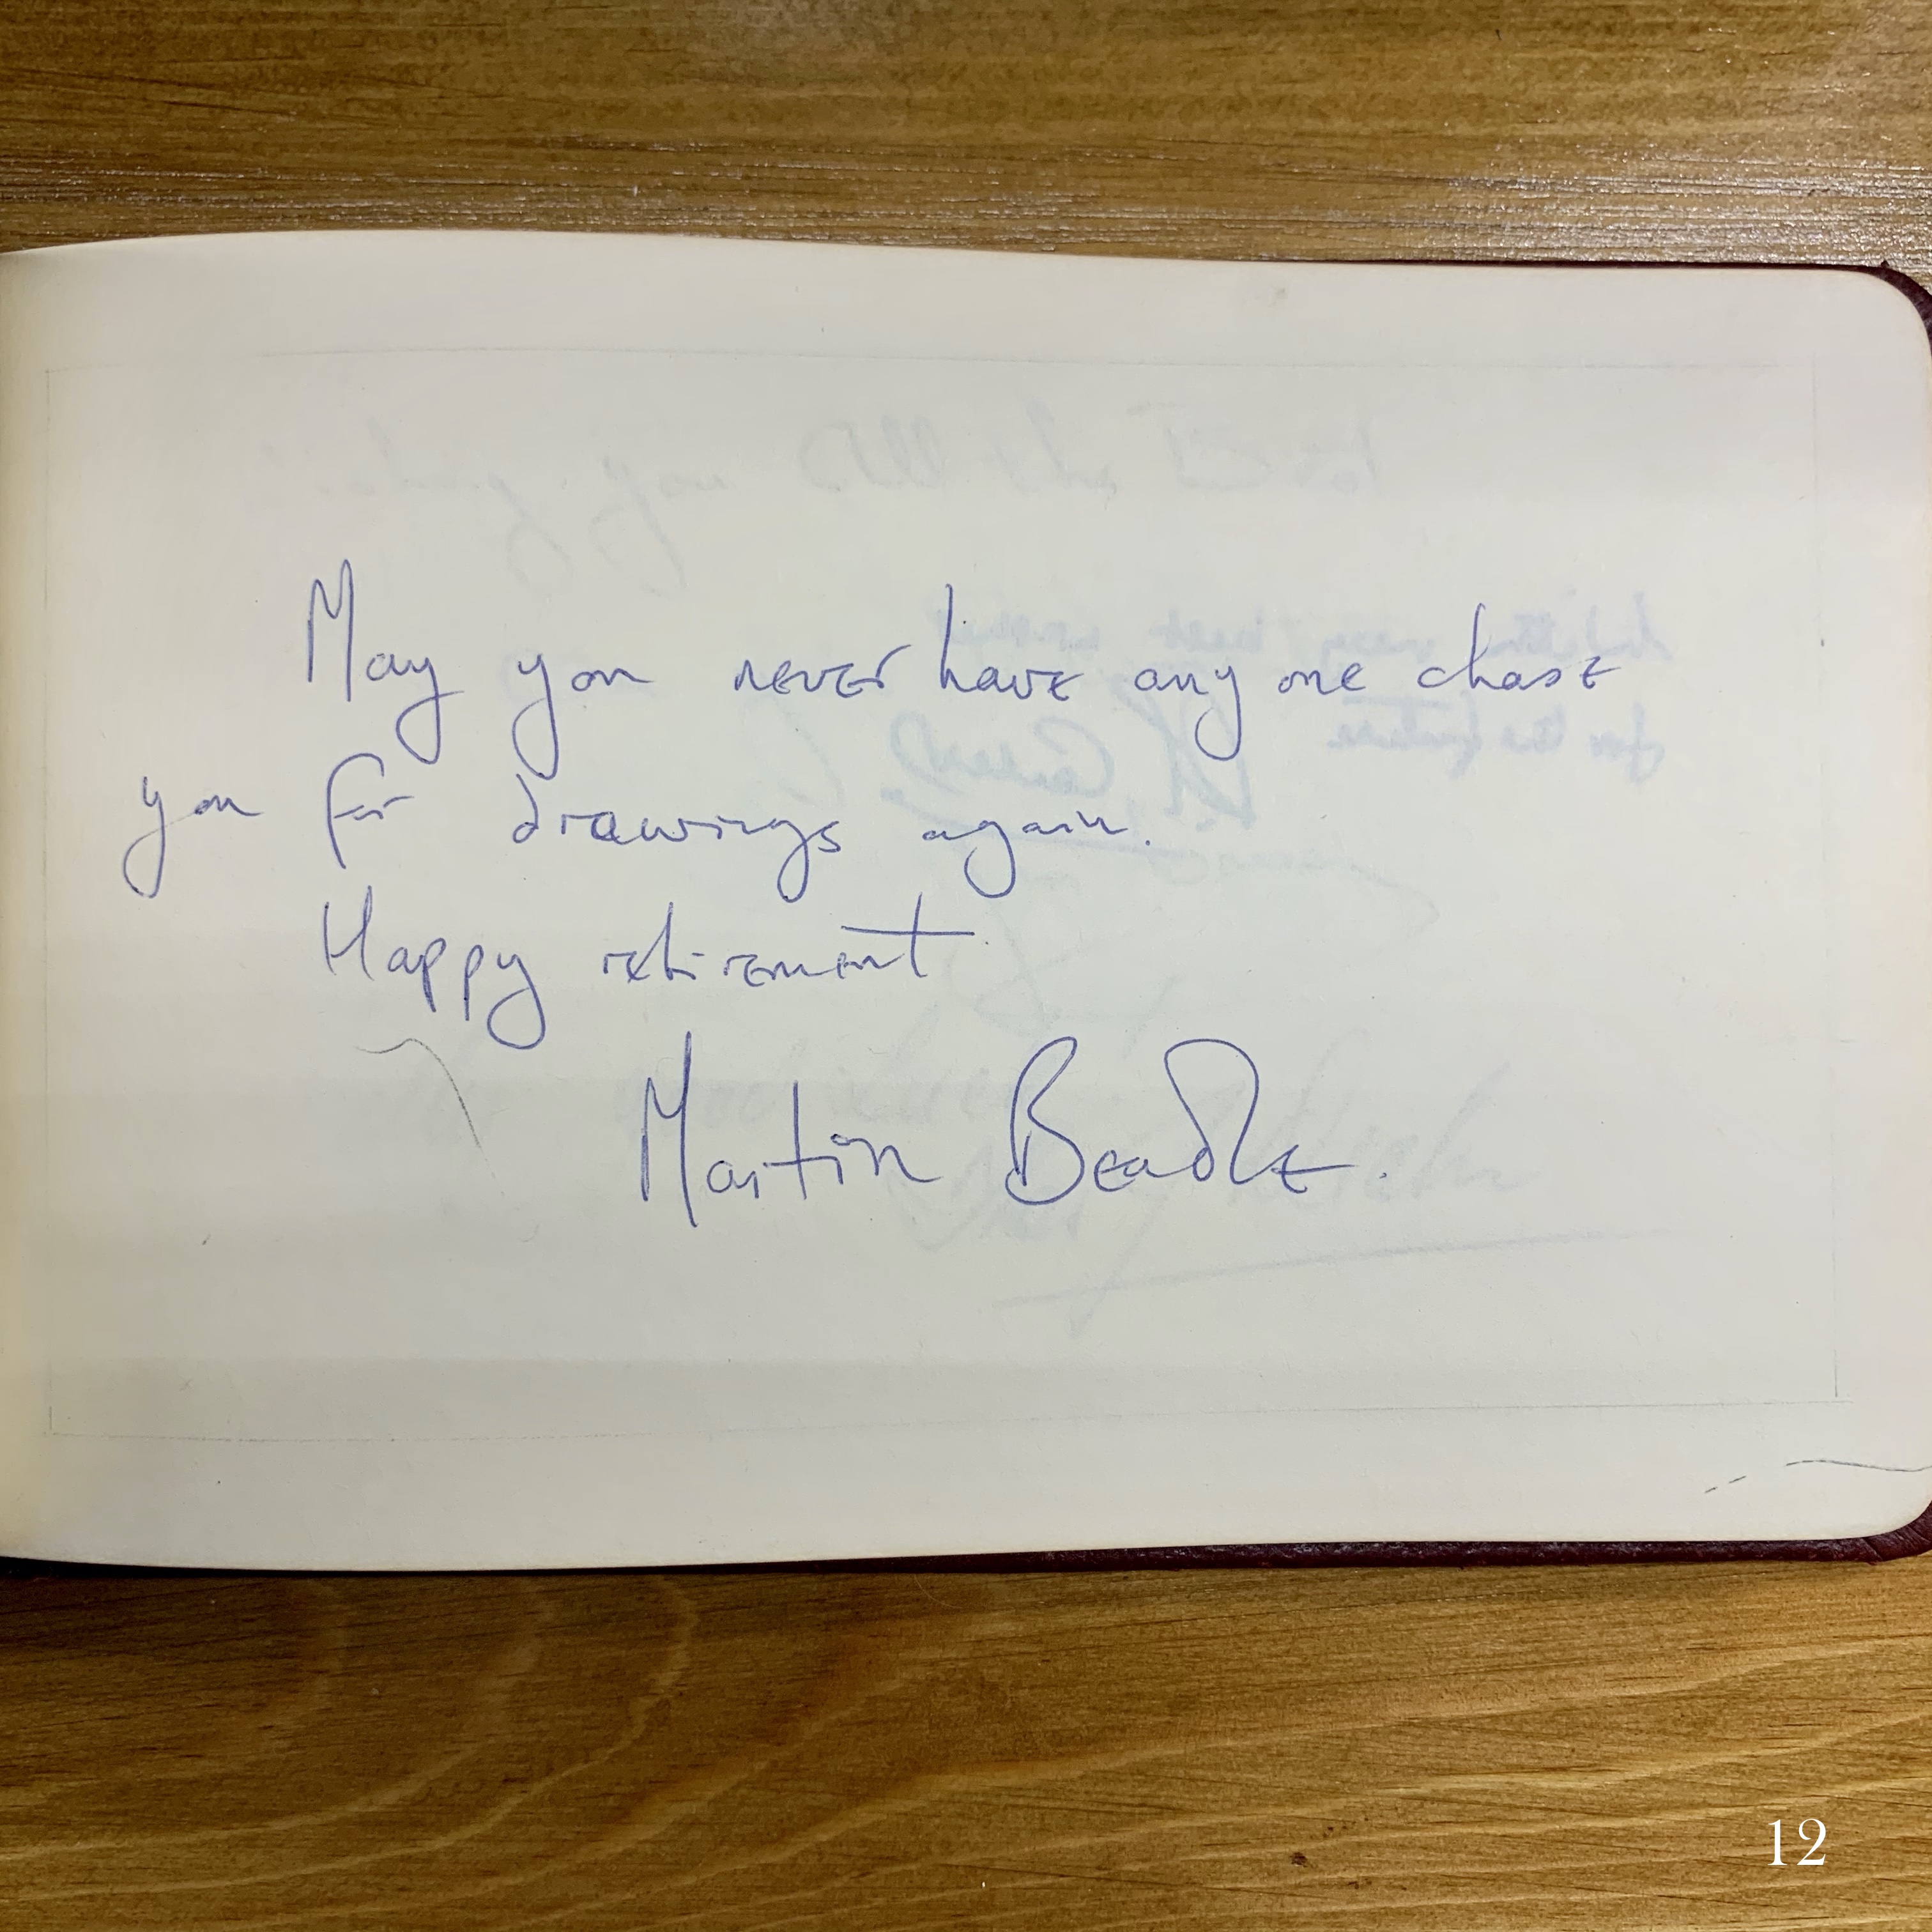 May you never have any one chase
you for drawings again.
Happy retirement
Martin Beadle.
12